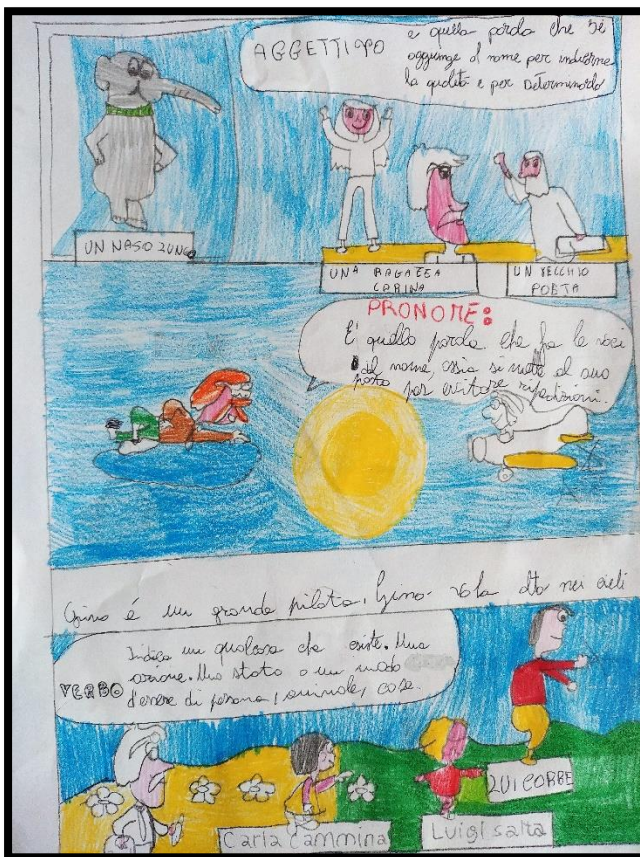 AGGETTIVO
è quella parola che si
aggiunge al nome per indicarne
la qualità e per determinarlo
UN NASO LUNGO
UNA RAGAZZA
CARINA
UN VECCHIO
POETA
PRONOME:
È quella parola che fa le veci
del nome, ossia si mette al suo
posto per evitare ripetizioni.
Gino è un grande pilota, Gino vola alto nei cieli
Indica un qualcosa che esiste. Una
azione. Uno stato o un modo
VERBO d'essere di persona, animale, cose.
LUI CORRE
Carla Cammina
Luigi salta